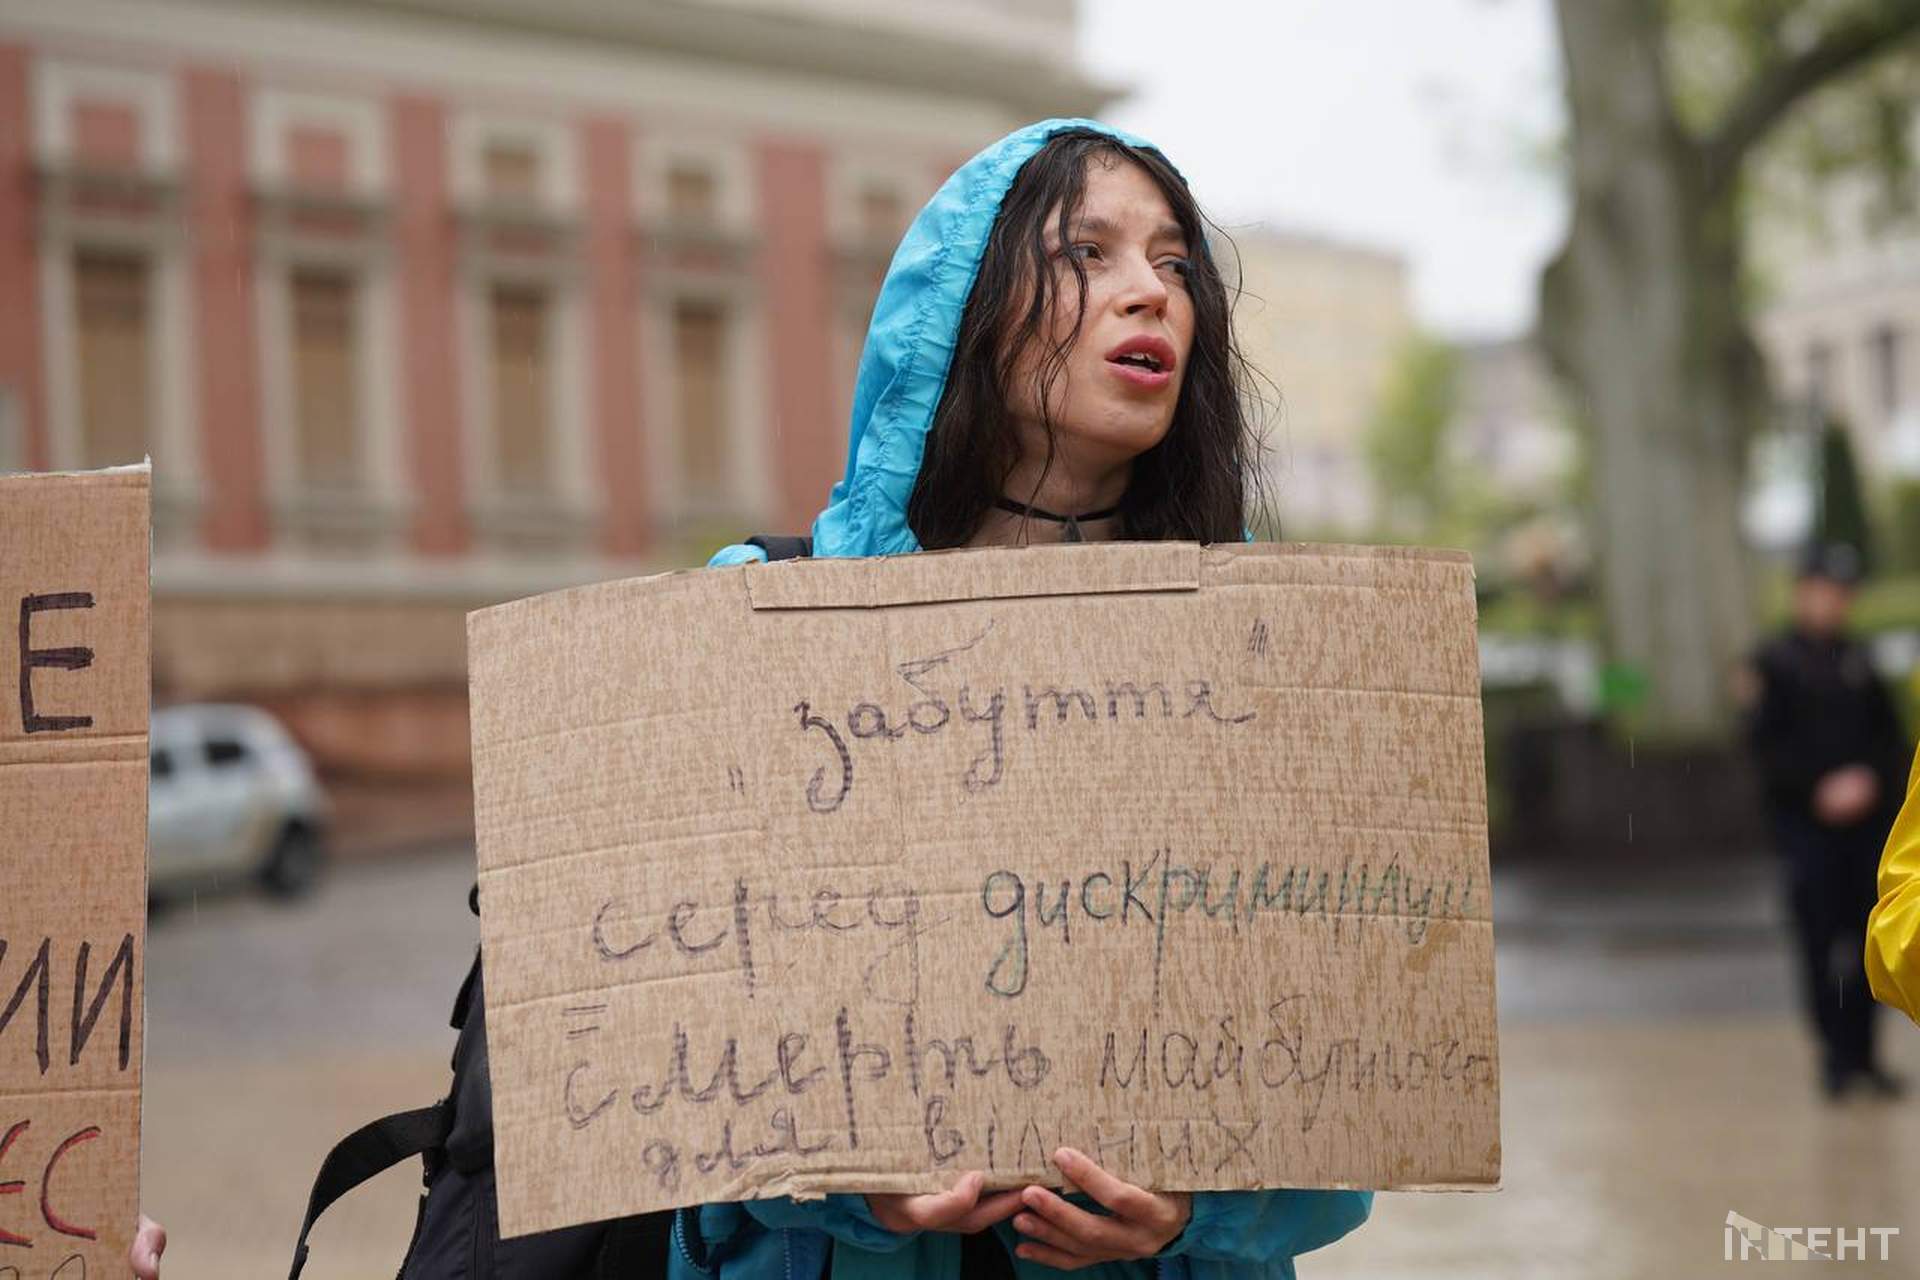 "забуття"
серед дискримінації
=
смерть майбутнього
для вільних
Е
ИИ
ЕС
ІНТЕНТ